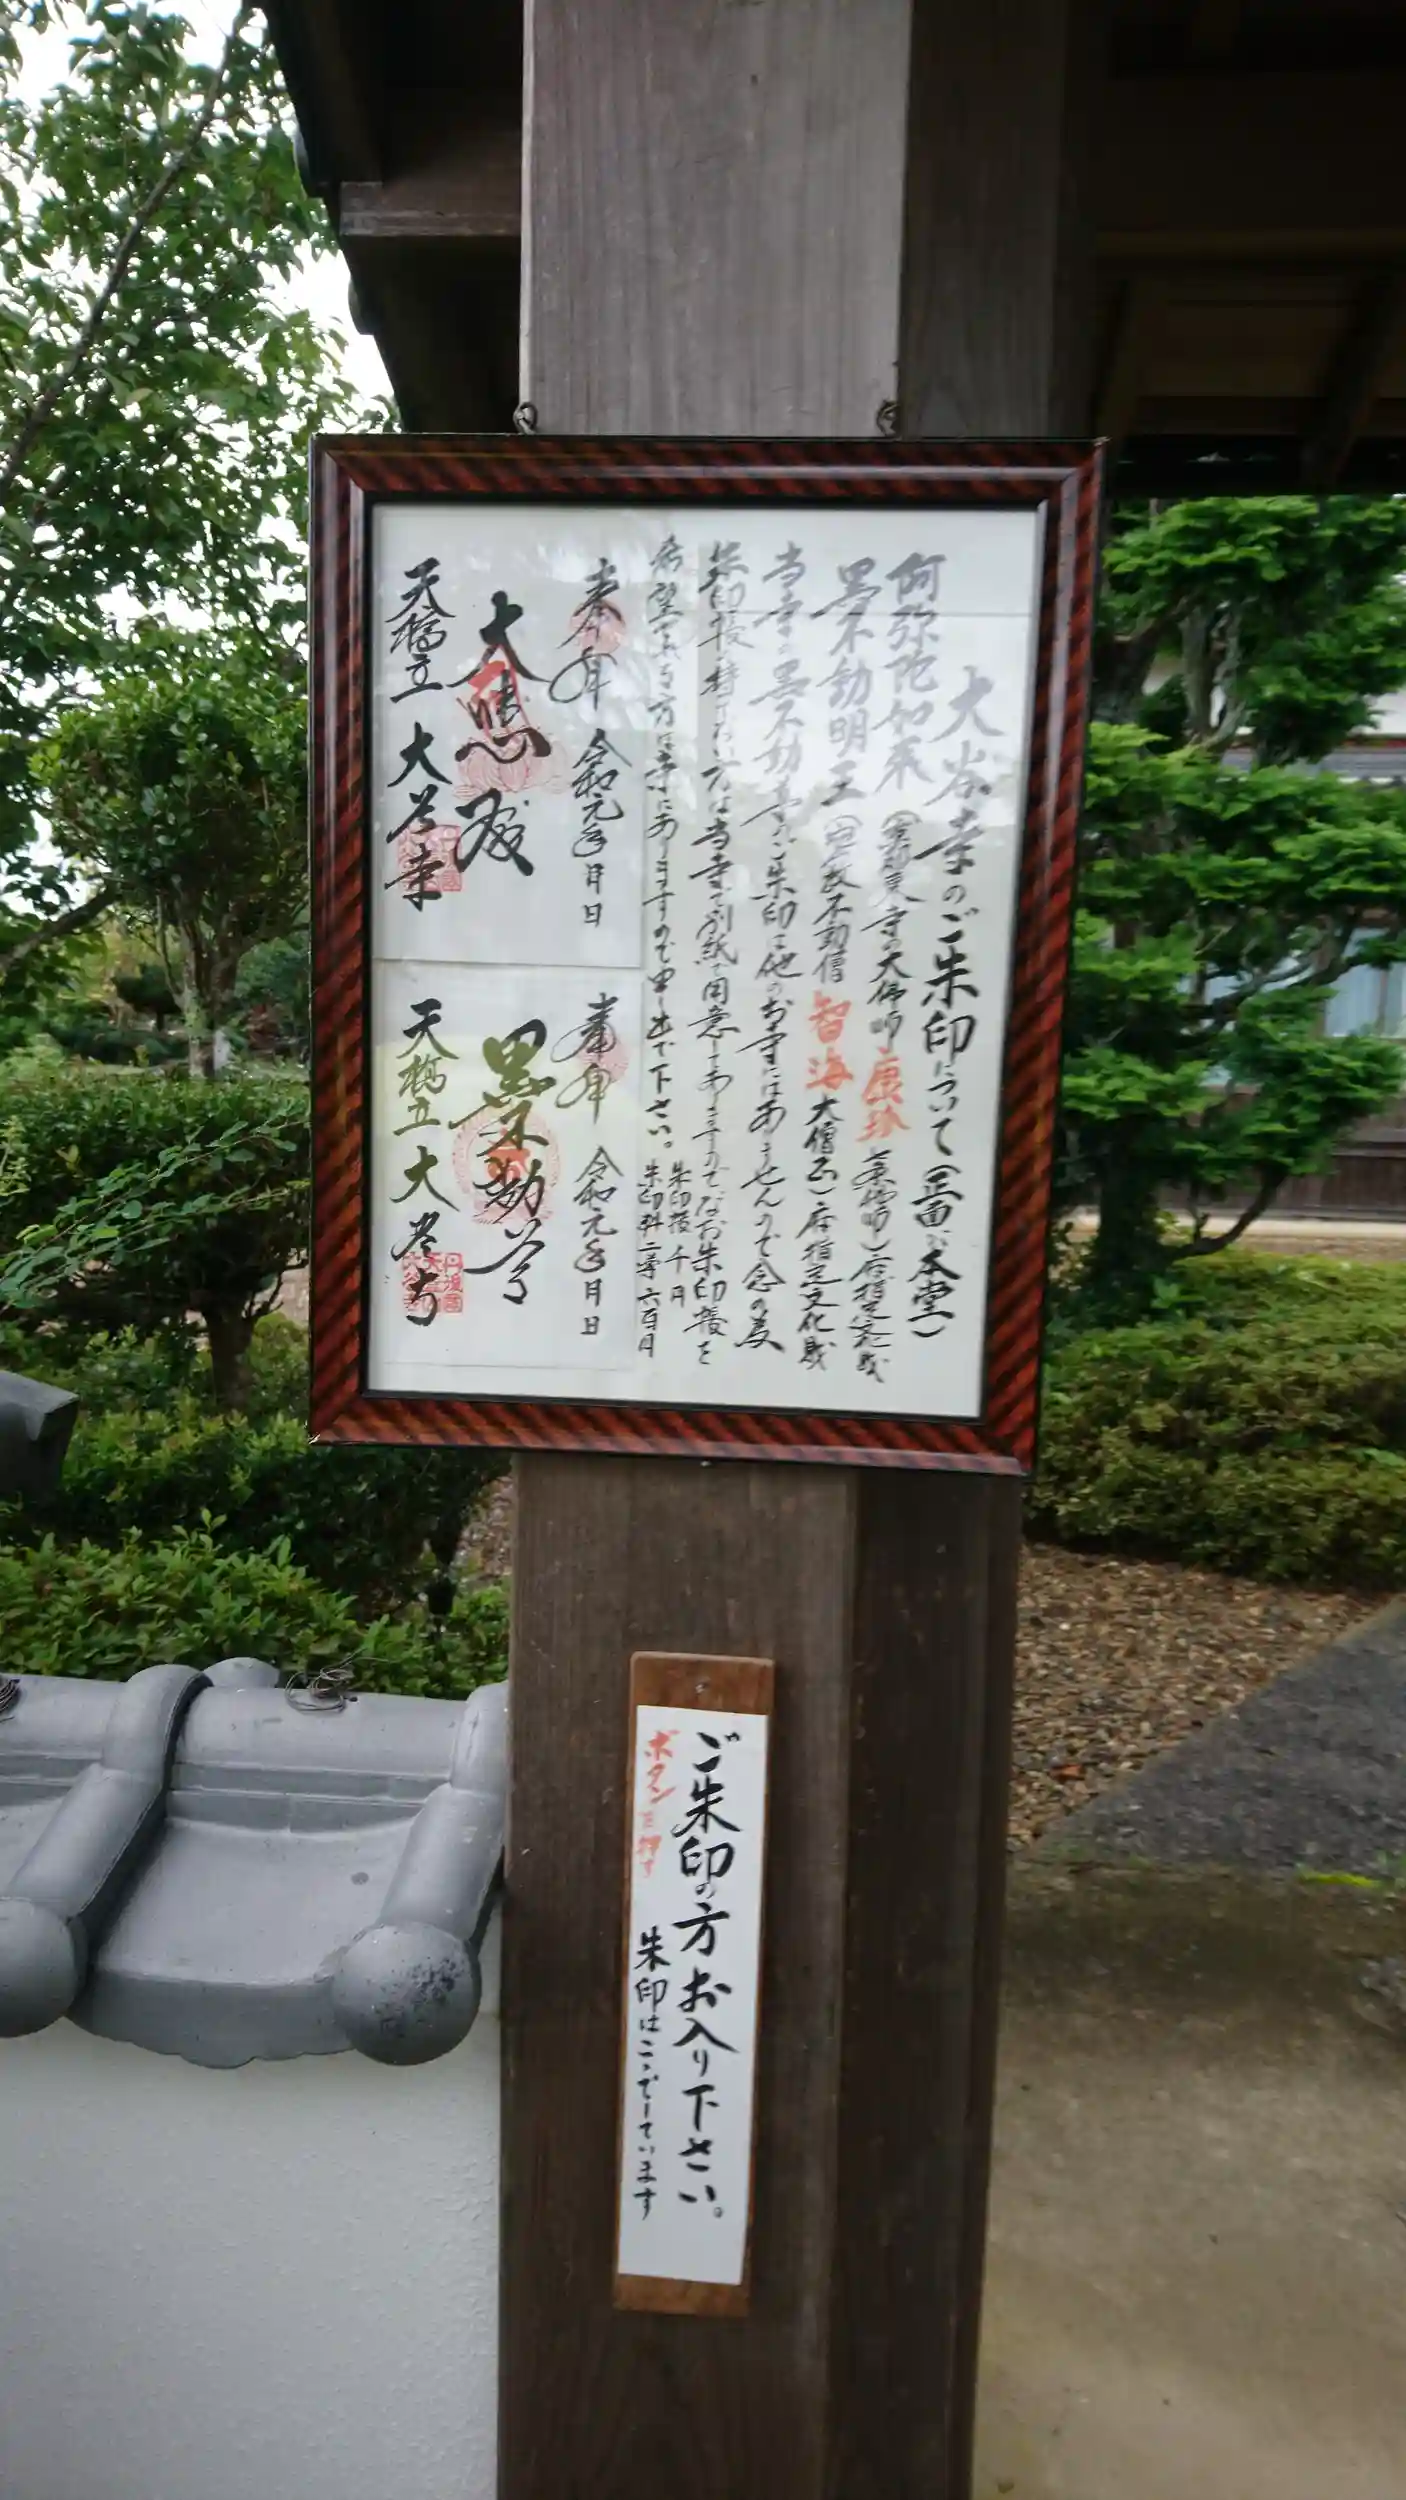 大谷寺のご朱印について(正面が本堂)
阿弥陀如来
寺の大佛師康珍
府指定文化財
黒不動明王
智海大僧正)府指定文化財
当寺の黒不動尊のご朱印は他のお寺にはありませんので念の為
朱印帳の持てない方は当寺で別紙で用意してありますのでなお朱印帳を
希望される方は寺にありますので申し出て下さい。
朱印帳千円
朱印料二尊六百円
奉拝 令和元年月日
大悲殿
天橋立 大谷寺
奉拝 令和元年月日
黒不動尊
天橋立 大谷寺
ご朱印の方お入り下さい。
ボタンを押す
朱印はここでしています